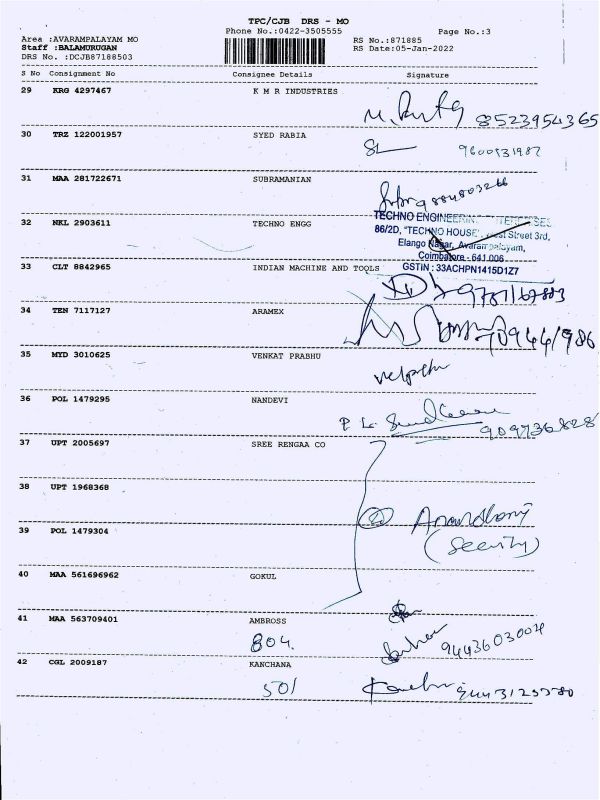 TPC/CJB DRS - MO
Phone No.:0422-3505555
Page No.:3
Area :AVARAMPALAYAM MO
RS No.:871885
Staff :BALAMURUGAN
RS Date:05-Jan-2022
DRS No. :DCJB87188503
S No Consignment No Consignee Details Signature
29 KRG 4297467 K M R INDUSTRIES
8523954365
30 TRZ 122001957 SYED RABIA
9600531987
31 MAA 281722671 SUBRAMANIAN
9884803266
32 NKL 2903611 TECHNO ENGG
TECHNO ENGINEERING
86/2D, "TECHNO HOUSE", West Street 3rd,
Elango Nagar, Avarampalayam,
Coimbatore - 641 006
33 CLT 8842965 INDIAN MACHINE AND TOOLS
GSTIN : 33ACHPN1415D1Z7
34 TEN 7117127 ARAMEX
35 MYD 3010625 VENKAT PRABHU
36 POL 1479295 NANDEVI
9097736828
37 UPT 2005697 SREE RENGAA CO
38 UPT 1968368
39 POL 1479304
40 MAA 561696962 GOKUL
41 MAA 563709401 AMBROSS
804.
9443603004
42 CGL 2009187 KANCHANA
501